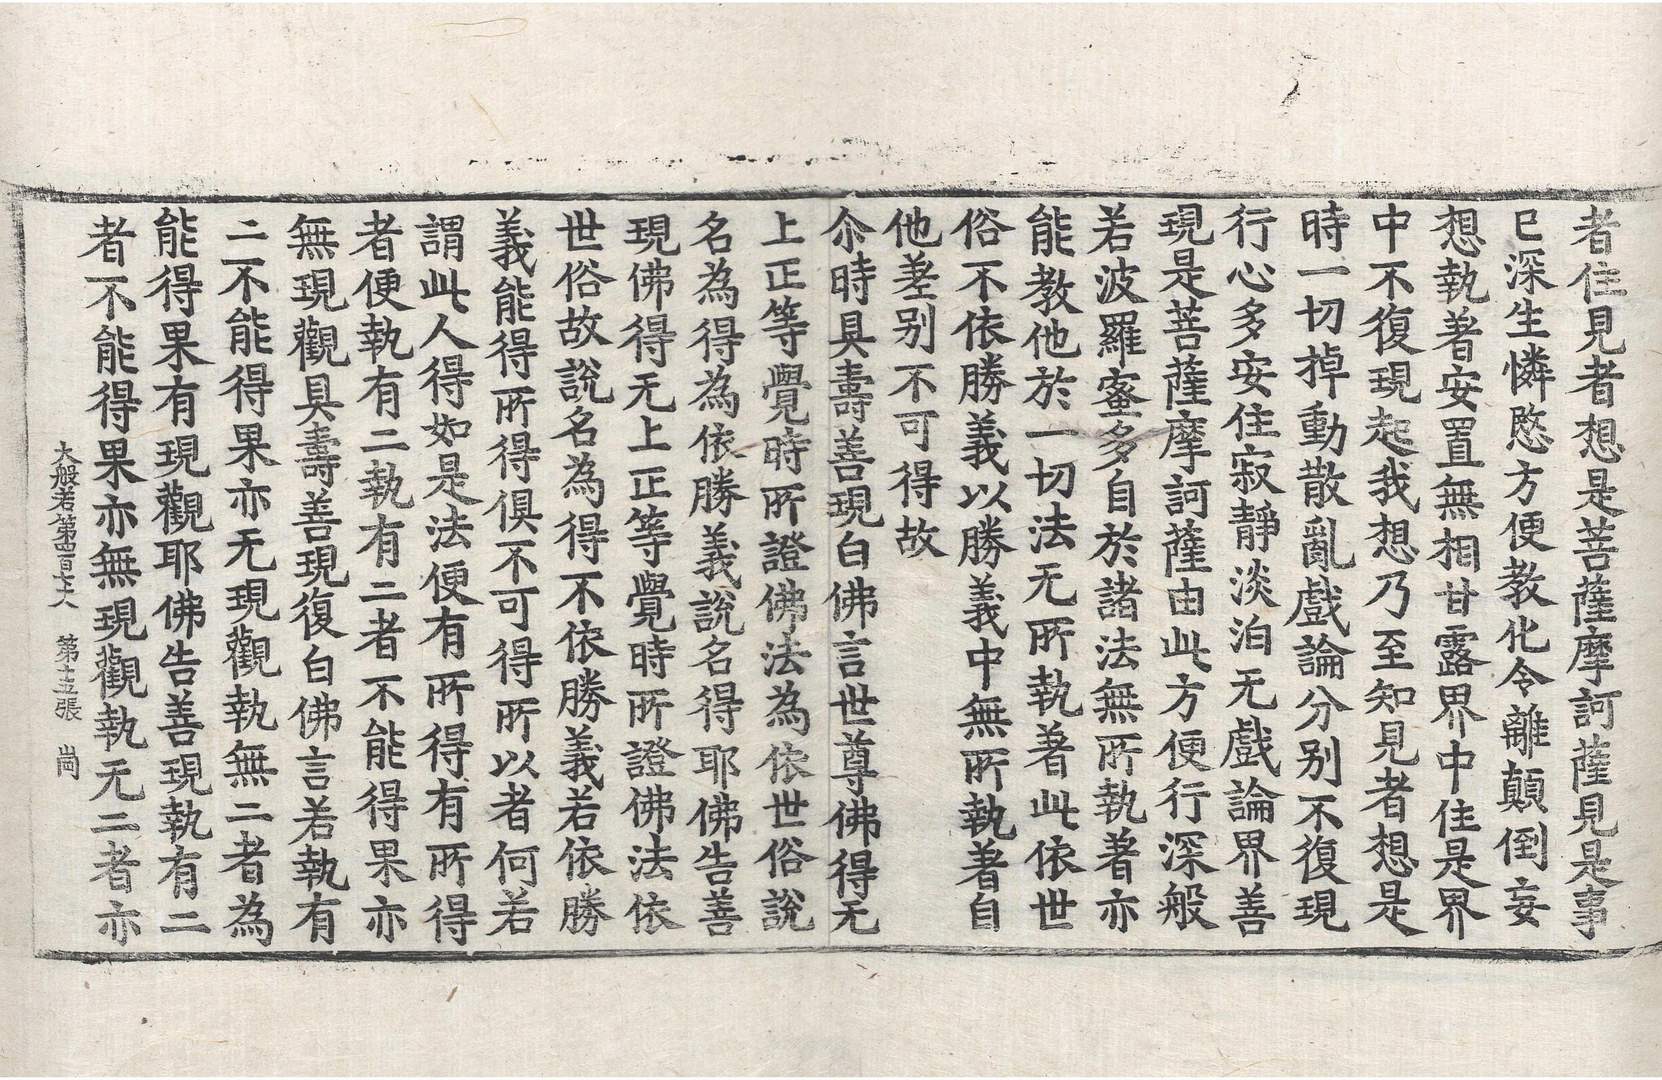 者住見者想是菩薩摩訶薩見是事
已深生憐愍方便教化令離顛倒妄
想執著安置無相甘露界中住是界
中不復現起我想乃至知見者想是
時一切掉動散亂戲論分别不復現
行心多安住寂靜淡泊无戲論界善
現是菩薩摩訶薩由此方便行深般
若波羅蜜多自於諸法無所執著亦
能教他於一切法无所執著此依世
俗不依勝義以勝義中無所執著自
他差别不可得故
尒時具壽善現白佛言世尊佛得无
上正等覺時所證佛法為依世俗說
名為得為依勝義說名得耶佛告善
現佛得无上正等覺時所證佛法依
世俗故說名為得不依勝義若依勝
義能得所得俱不可得所以者何若
謂此人得如是法便有所得有所得
者便執有二執有二者不能得果亦
無現觀具壽善現復白佛言若執有
二不能得果亦无現觀執無二者為
能得果有現觀耶佛告善現執有二
者不能得果亦無現觀執无二者亦
大般若第四百七十八 第十五張 崗